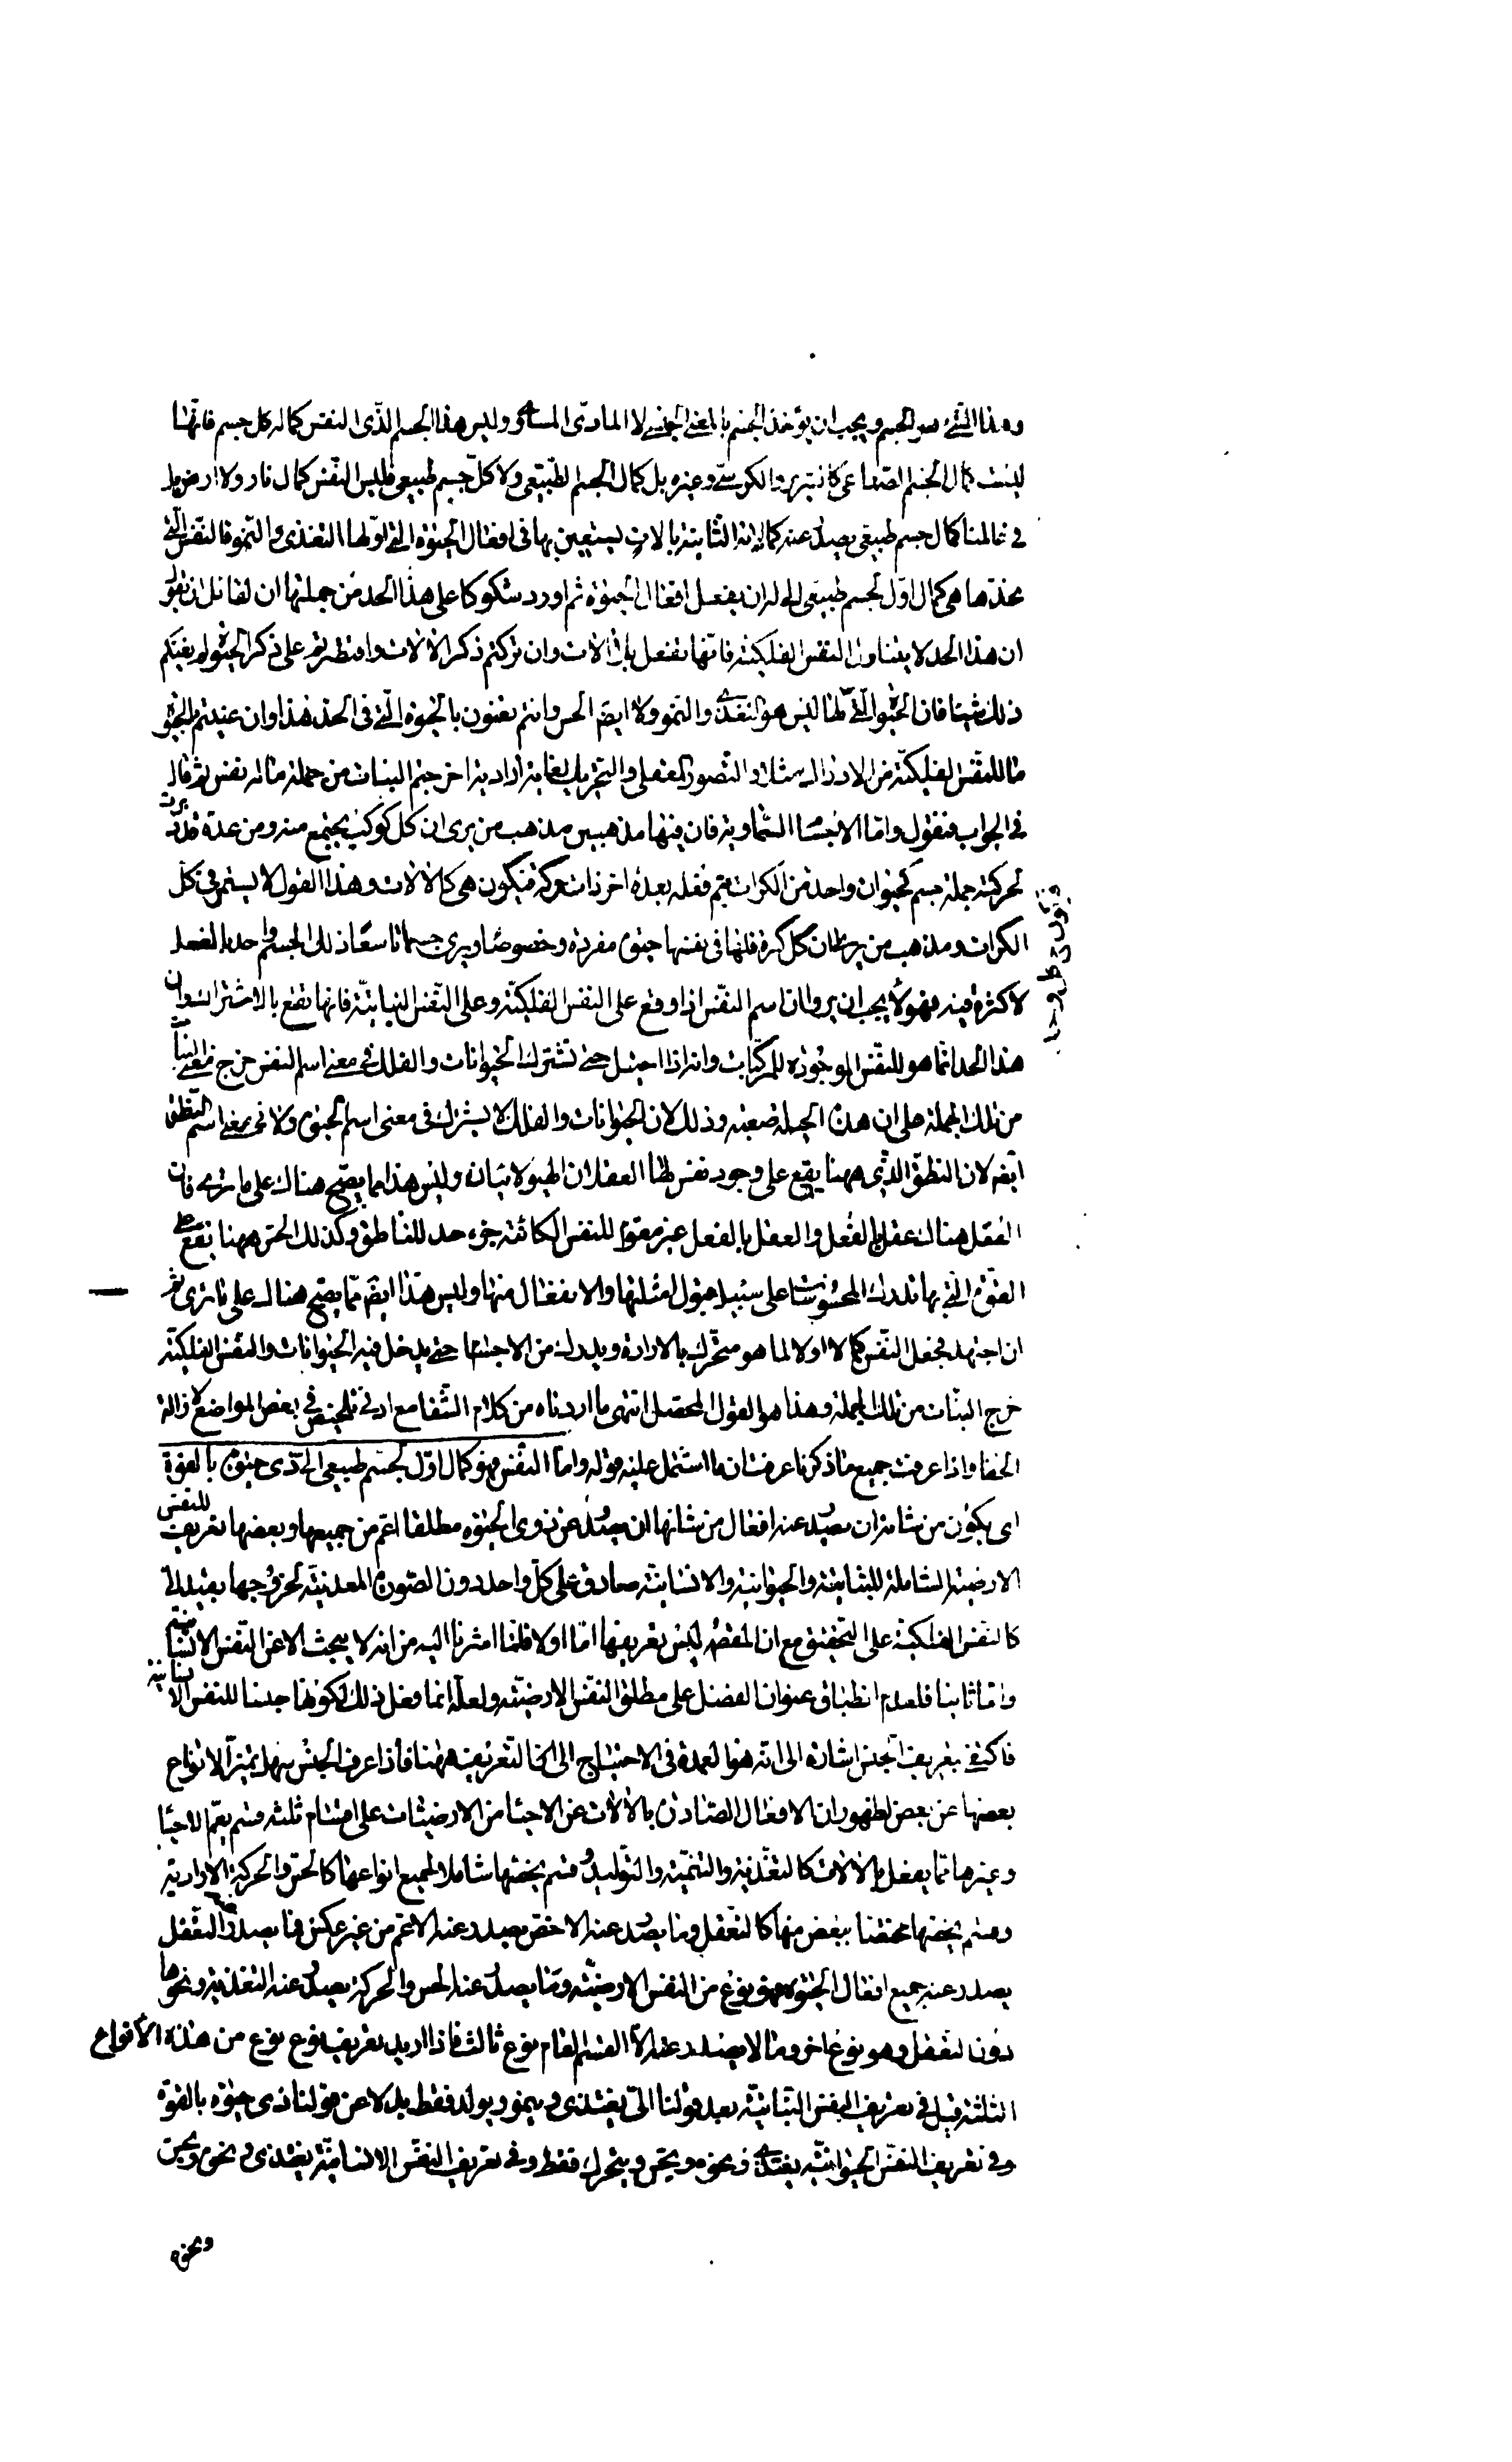 وهذا الشئ هو الجسم ويجب ان يؤخذ الجسم بالمعنى الجنسى لا المادى وليس هذا الجسم الذى النفس كماله كل جسم فانها
ليست كمال الجسم الصناعى كالسرير والكرسى وغيره بل كمال الجسم الطبيعى ولا كل جسم طبيعى فليس النفس كمال نار ولا ارض بل
فى عالمنا كمال جسم طبيعى يصدر عنه كمالاته الثانية بالات يستعين بها فى افعال الحيوة التى اولها التغذى والنمو فالنفس التى
نحدها هى كمال اول لجسم طبيعى الى له ان يفعل افعال الحيوة ثم اورد شكوكا على هذا الحد من جملتها ان لقائل ان يقول
ان هذا الحد لا يتناول النفس الفلكية فانها تفعل بلا الات وان تركتم ذكر الالات واقتصرتم على ذكر الحيوة لم يغنكم
ذلك شيئا فان الحيوة التى لها ليس هو التغذى والنمو ولا ايضا الحس وانتم تعنون بالحيوة التى فى الحد هذا وان عنيتم بالحيوة
ما للنفس الفلكية من الادراك مثلا والتصور العقلى والتحريك لغاية ارادية اخرجتم النبات من جملة ما له نفس ثم قال
فى الجواب فنقول واما الاجسام السماوية فان فيها مذهبين مذهب من يرى ان كل كوكب يجتمع منه ومن عدة كرات قد دبرت
لحركته جملة جسم كحيوان واحد فيتم فعله بعدة اخر ذات حركة فيكون هى كالالات وهذا القول لا يستمر فى كل
الكرات ومذهب من يرى ان كل كرة فلها فى نفسها حيوة مفردة وخصوصا ويرى جسما تاسعا ذلك الجسم واحد بالفعل
لا كثرة فيه فهولاء يجب ان يروا ان اسم النفس اذا وقع على النفس الفلكية وعلى النفس النباتية فانها تقع بالاشتراك وان
هذا الحد انما هو للنفس الموجودة للمركبات وانه اذا احتيل حتى تشترك الحيوانات والفلك فى معنى اسم النفس خرج معنى النبات
من تلك الجملة على ان هذه الحيلة صعبة وذلك لان الحيوانات والفلك لا يشترك فى معنى اسم الحيوة ولا فى معنى اسم النطق
ايضا لان النطق الذى ههنا يقع على وجود نفس لها العقلان الهيولانيان وليس هذا مما يصح هناك على ما ترى فان
العقل هناك عقل بالفعل والعقل بالفعل غير مقوم للنفس الكائنة جزء حد للناطق وكذلك الحس ههنا يقع على
القوة التى بها تدرك المحسوسات على سبيل قبول امثلتها والانفعال منها وليس هذا ايضا مما يصح هناك على ما ترى ثم
ان اجتهد فجعل النفس كمالا اولا لما هو متحرك بالارادة ويدرك من الاجسام حتى يدخل فيه الحيوانات والنفس الفلكية
خرج النبات من تلك الجملة وهذا هو القول المحصل انتهى ما اردناه من كلام الشفا مع ادنى تلخيص فى بعض المواضع لازالة
الخفا واذا عرفت جميع ما ذكرنا عرفت ان ما اشتمل عليه قوله واما النفس فهو كمال اول لجسم طبيعى الى ذى حيوة بالقوة
اى يكون من شانه ان يصدر عنه افعال من شانها ان يصدر عن ذوى الحيوة مطلقا اعم من جميعها وبعضها تعريف للنفس
الارضية الشاملة للنباتية والحيوانية والانسانية صادق على كل واحد دون الصورة المعدنية لخروجها بقيد الى
كالنفس الفلكية على التحقيق مع ان المقصود ليس تعريفها اما اولا فلما اشرنا اليه من انه لا يبحث الا عن النفس الانسانية
واما ثانيا فلعدم انطباق عنوان الفصل على مطلق النفس الارضية ولعله انما فعل ذلك لكونها جنسا للنفس الانسانية
فاكتفى بتعريف الجنس اشارة الى انه هو العمدة فى الاحتياج الى التعريف ههنا فاذا عرف الجنس سهل تميز الانواع
بعضها عن بعض لظهور ان الافعال الصادرة بالالات عن الاجسام من الارضيات على اقسام ثلثة قسم يعم الاحياء
وغيرها مما يفعل بالالات كالتغذية والتنمية والتوليد وقسم يخصها شاملا لجميع انواعها كالحس والحركة الارادية
وقسم يخصها مختصا ببعض منها كالتعقل وما يصدر عنه الاخص يصدر عنه الاعم من غير عكس فما يصدر عنه التعقل
يصدر عنه جميع افعال الحيوة فهو نوع من النفس الارضية وما يصدر عنه الحس والحركة يصدر عنه التغذية ونحوها
دون التعقل وهو نوع اخر وما لا يصدر عنه الا القسم العام نوع ثالث فاذا اريد تعريف نوع نوع من هذه الانواع
الثلثة قيل فى تعريف النفس النباتية بعد قولنا الى يغتذى وينمو ويولد فقط بدلا عن قولنا ذى حيوة بالقوة
وفى تعريف النفس الحيوانية يغتذى ونحوه ويحس ويتحرك فقط وفى تعريف النفس الانسانية يغتذى ونحوه ويحس
ونحوه